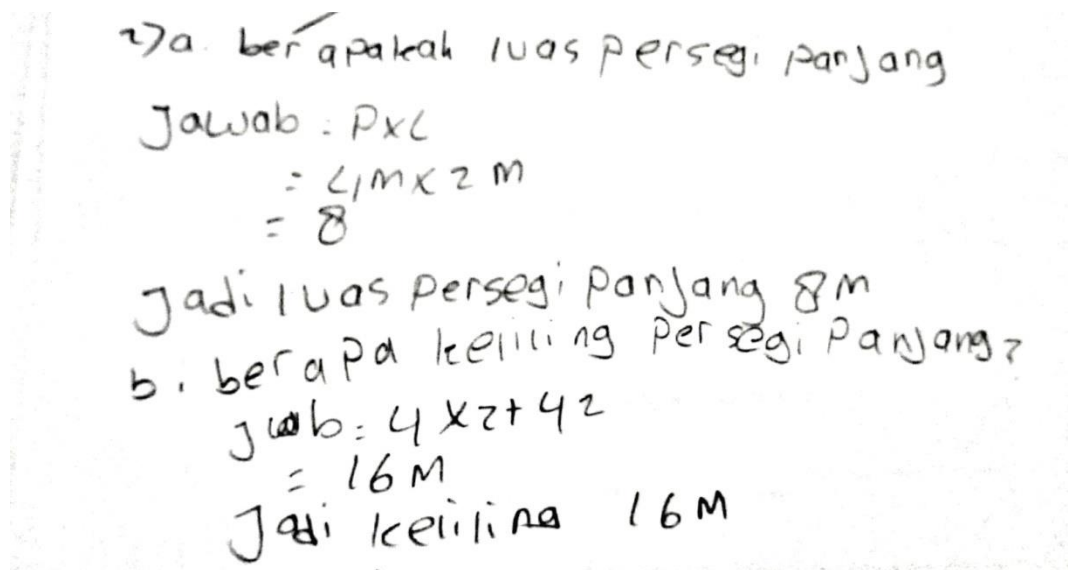 2)a. berapakah luas persegi panjang
Jawab : PxL
= 4m x 2 m
= 8
Jadi luas persegi panjang 8m
b. berapa keliling persegi panjang?
jwb: 4 x 2 + 4 2
= 16 M
Jadi keliling 16M